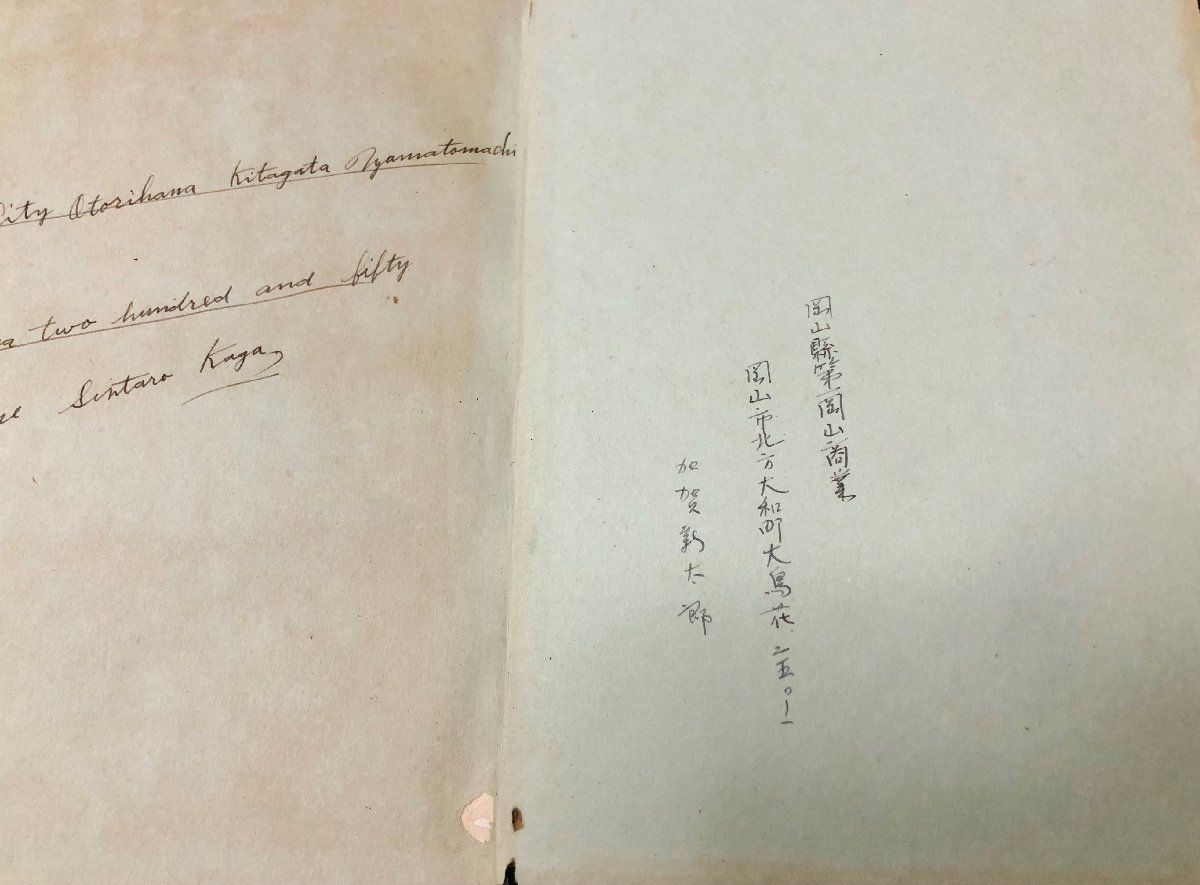 City Otorihana Kitagata Nyamatomachi
two hundred and fifty
Sintaro Kaga
岡山縣第一岡山商業
岡山市北方大和町大鳥花二五〇ノ一
加賀新太郎